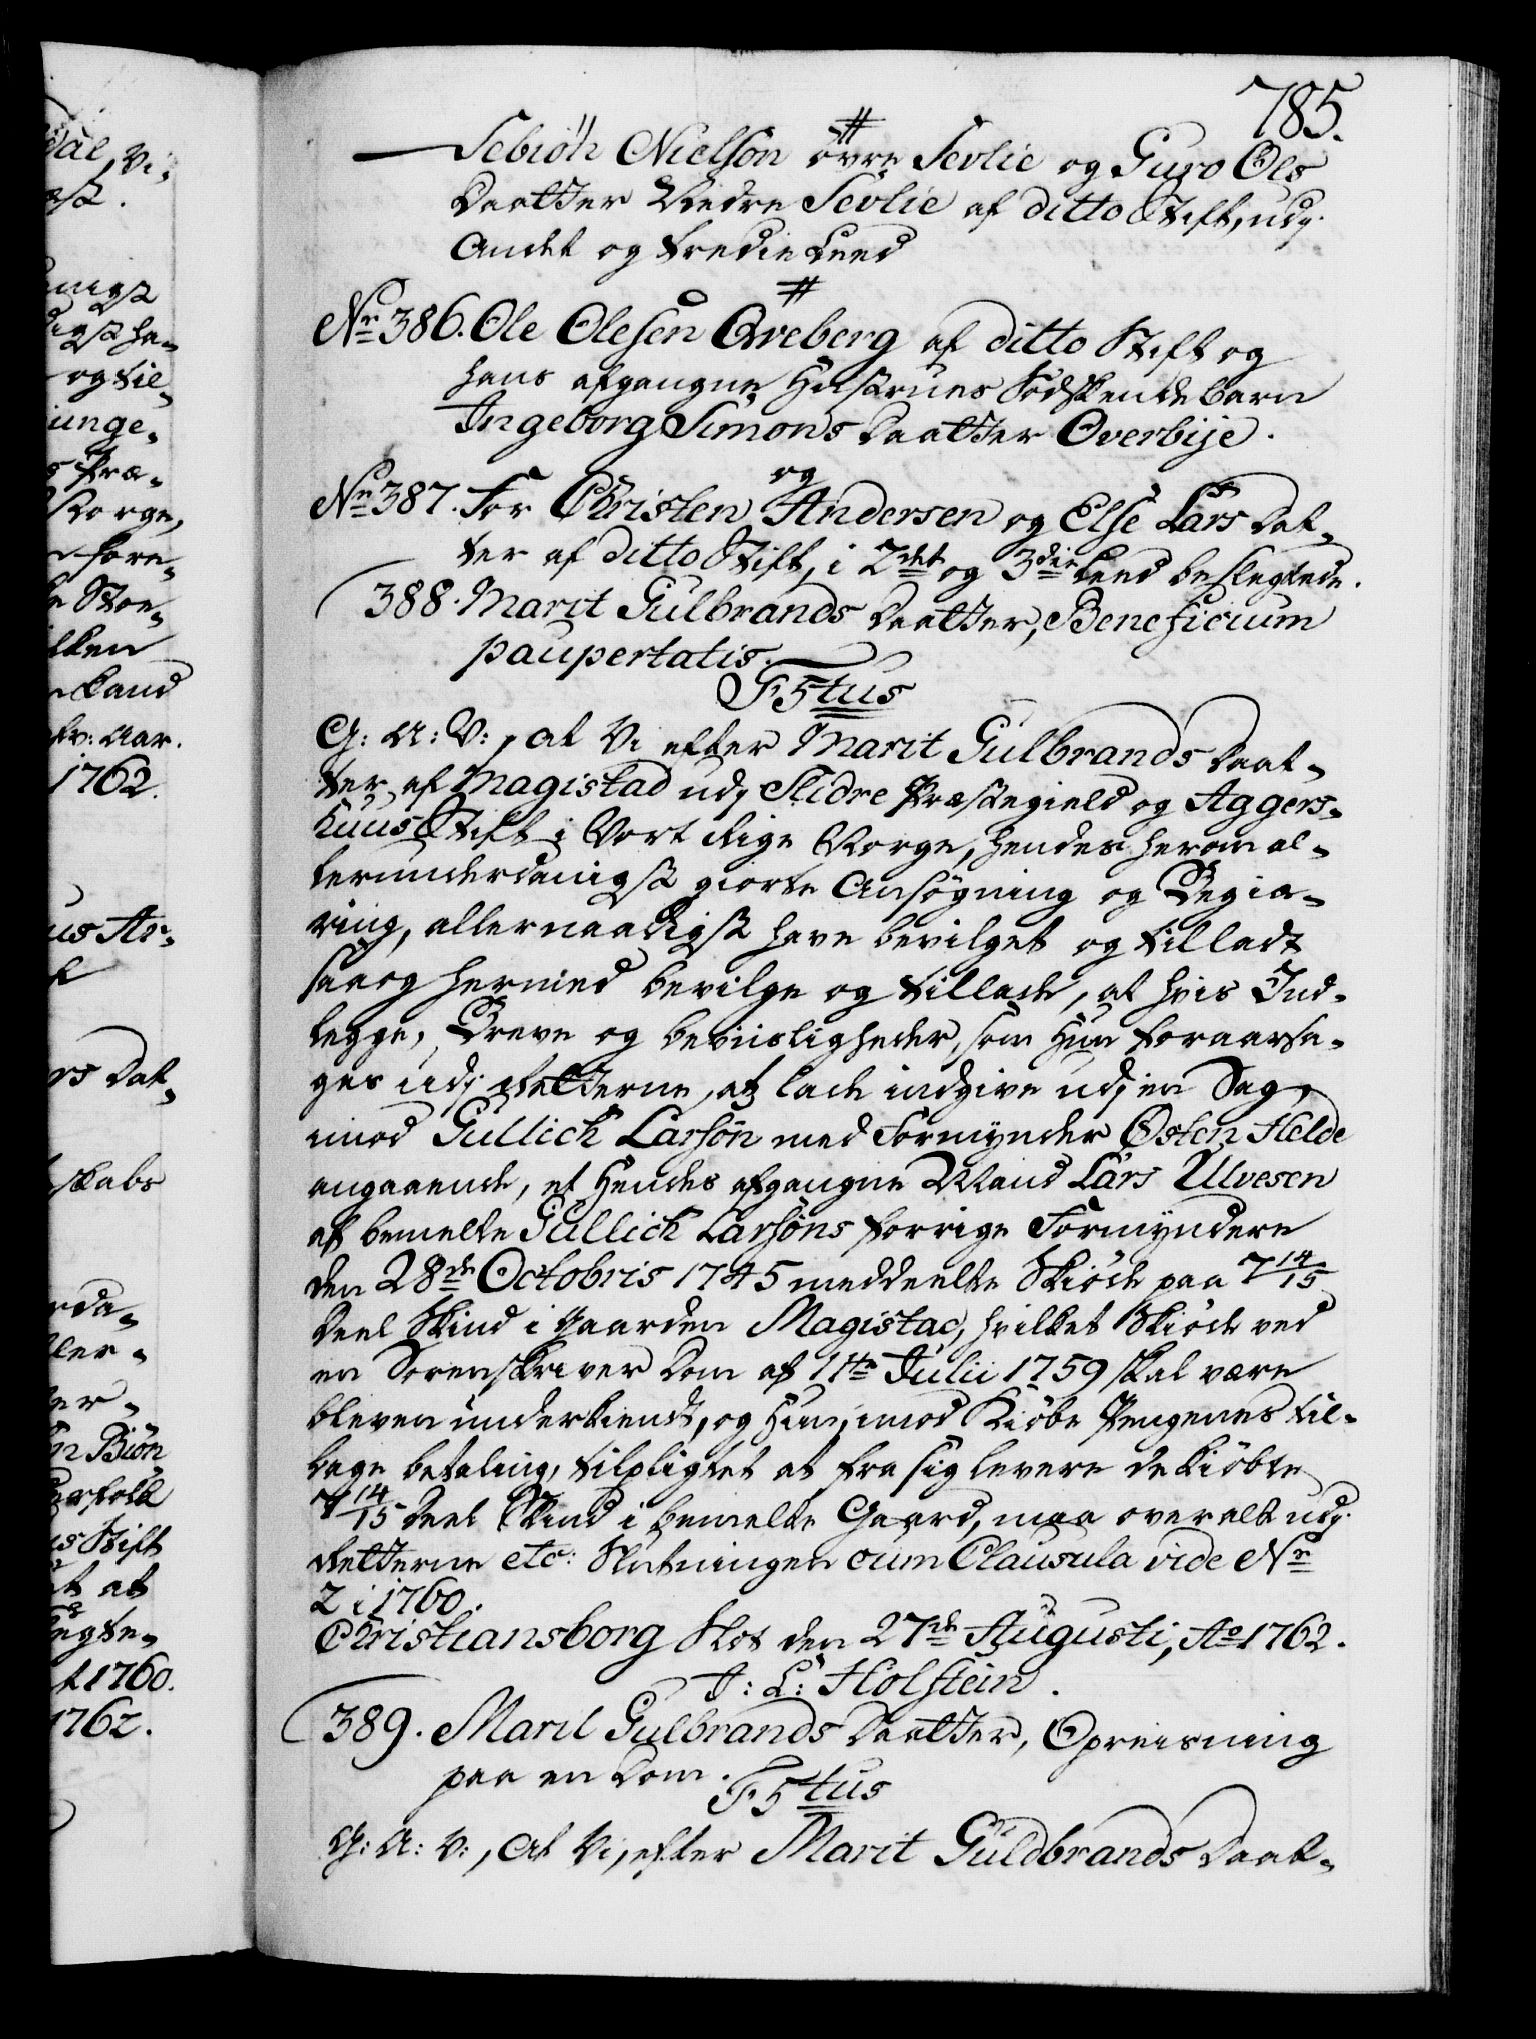 785.
#
Sebiøn Nielsøn övre Sevlie og Guro Ols
Daatter Nedre Sevlie af ditto Stift, udj
Andet og tredie Leed
#
No 386. Ole Olesen Qveberg af ditto Stift og
hans afgangne Hustrues Södskendebarn
Ingeborg Simons Daatter Overbije.
og
No 387. For Christen Andersen og Else Lars Dat-
ter af ditto Stift, i 2det og 3die Leed beslegtede.
388. Marit Gulbrands Daatter, Beneficium
paupertatis.
F 5tus
G: A: V:, at Vi efter Marit Gulbrands Daat-
ter, af Magistad udj Slidre Præstegield og Aggers-
huus Stift i Vort Rige Norge, hendes herom al-
lerunderdanigst giorte Ansögning og Begiæ-
ring, allernaadigst have bevilget og tilladt
saa og hermed bevilge og tillade, at hvis Ind-
legge, Breve og beviisligheder, som Hun foraarsa-
ges udj Retterne, at lade indgive udj en Sag,
imod Gullich Larsøn med Formynder Østen Helde
angaaende, et Hendes afgangne Mand Lars Ulvesen
af bemelte Gullich Larsøns forrige Formyndere
den 28de Octobris 1745 meddeelte Skiöde paa 7 14/15
Deel Skind i Gaarden Magistad, hvilket Skiöde ved
en Sorenskriver Dom af 11te Julii 1759 skal være
bleven underkiendt, og Hun, imod Kiöbe Pengenes til-
bage betaling, tilpligtet at fra sig levere de kiöbte
7 14/15 Deel Skind i bemelte Gaard, maa overalt udj
Retterne etc: Slutningen cum Clausula vide No
2 i 1760.
Christiansborg Slot den 27de Augusti, Ao 1762.
J: L: Holstein.
389. Marit Gulbrands Daatter, Opreisning
paa en Dom.
F 5tus
G: A: V:, At Vi, efter Marit Guldbrands Daat-